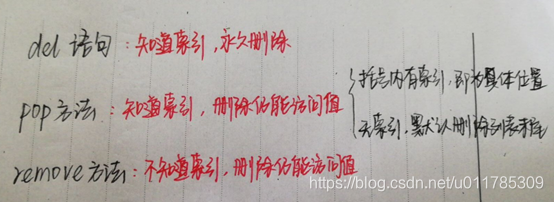 del 语句：知道索引，永久删除
pop方法：知道索引，删除仍能访问值
括号内有索引，即为具体位置
无索引，默认删除列表末尾
remove方法：不知道索引，删除仍能访问值
https://blog.csdn.net/u011785309